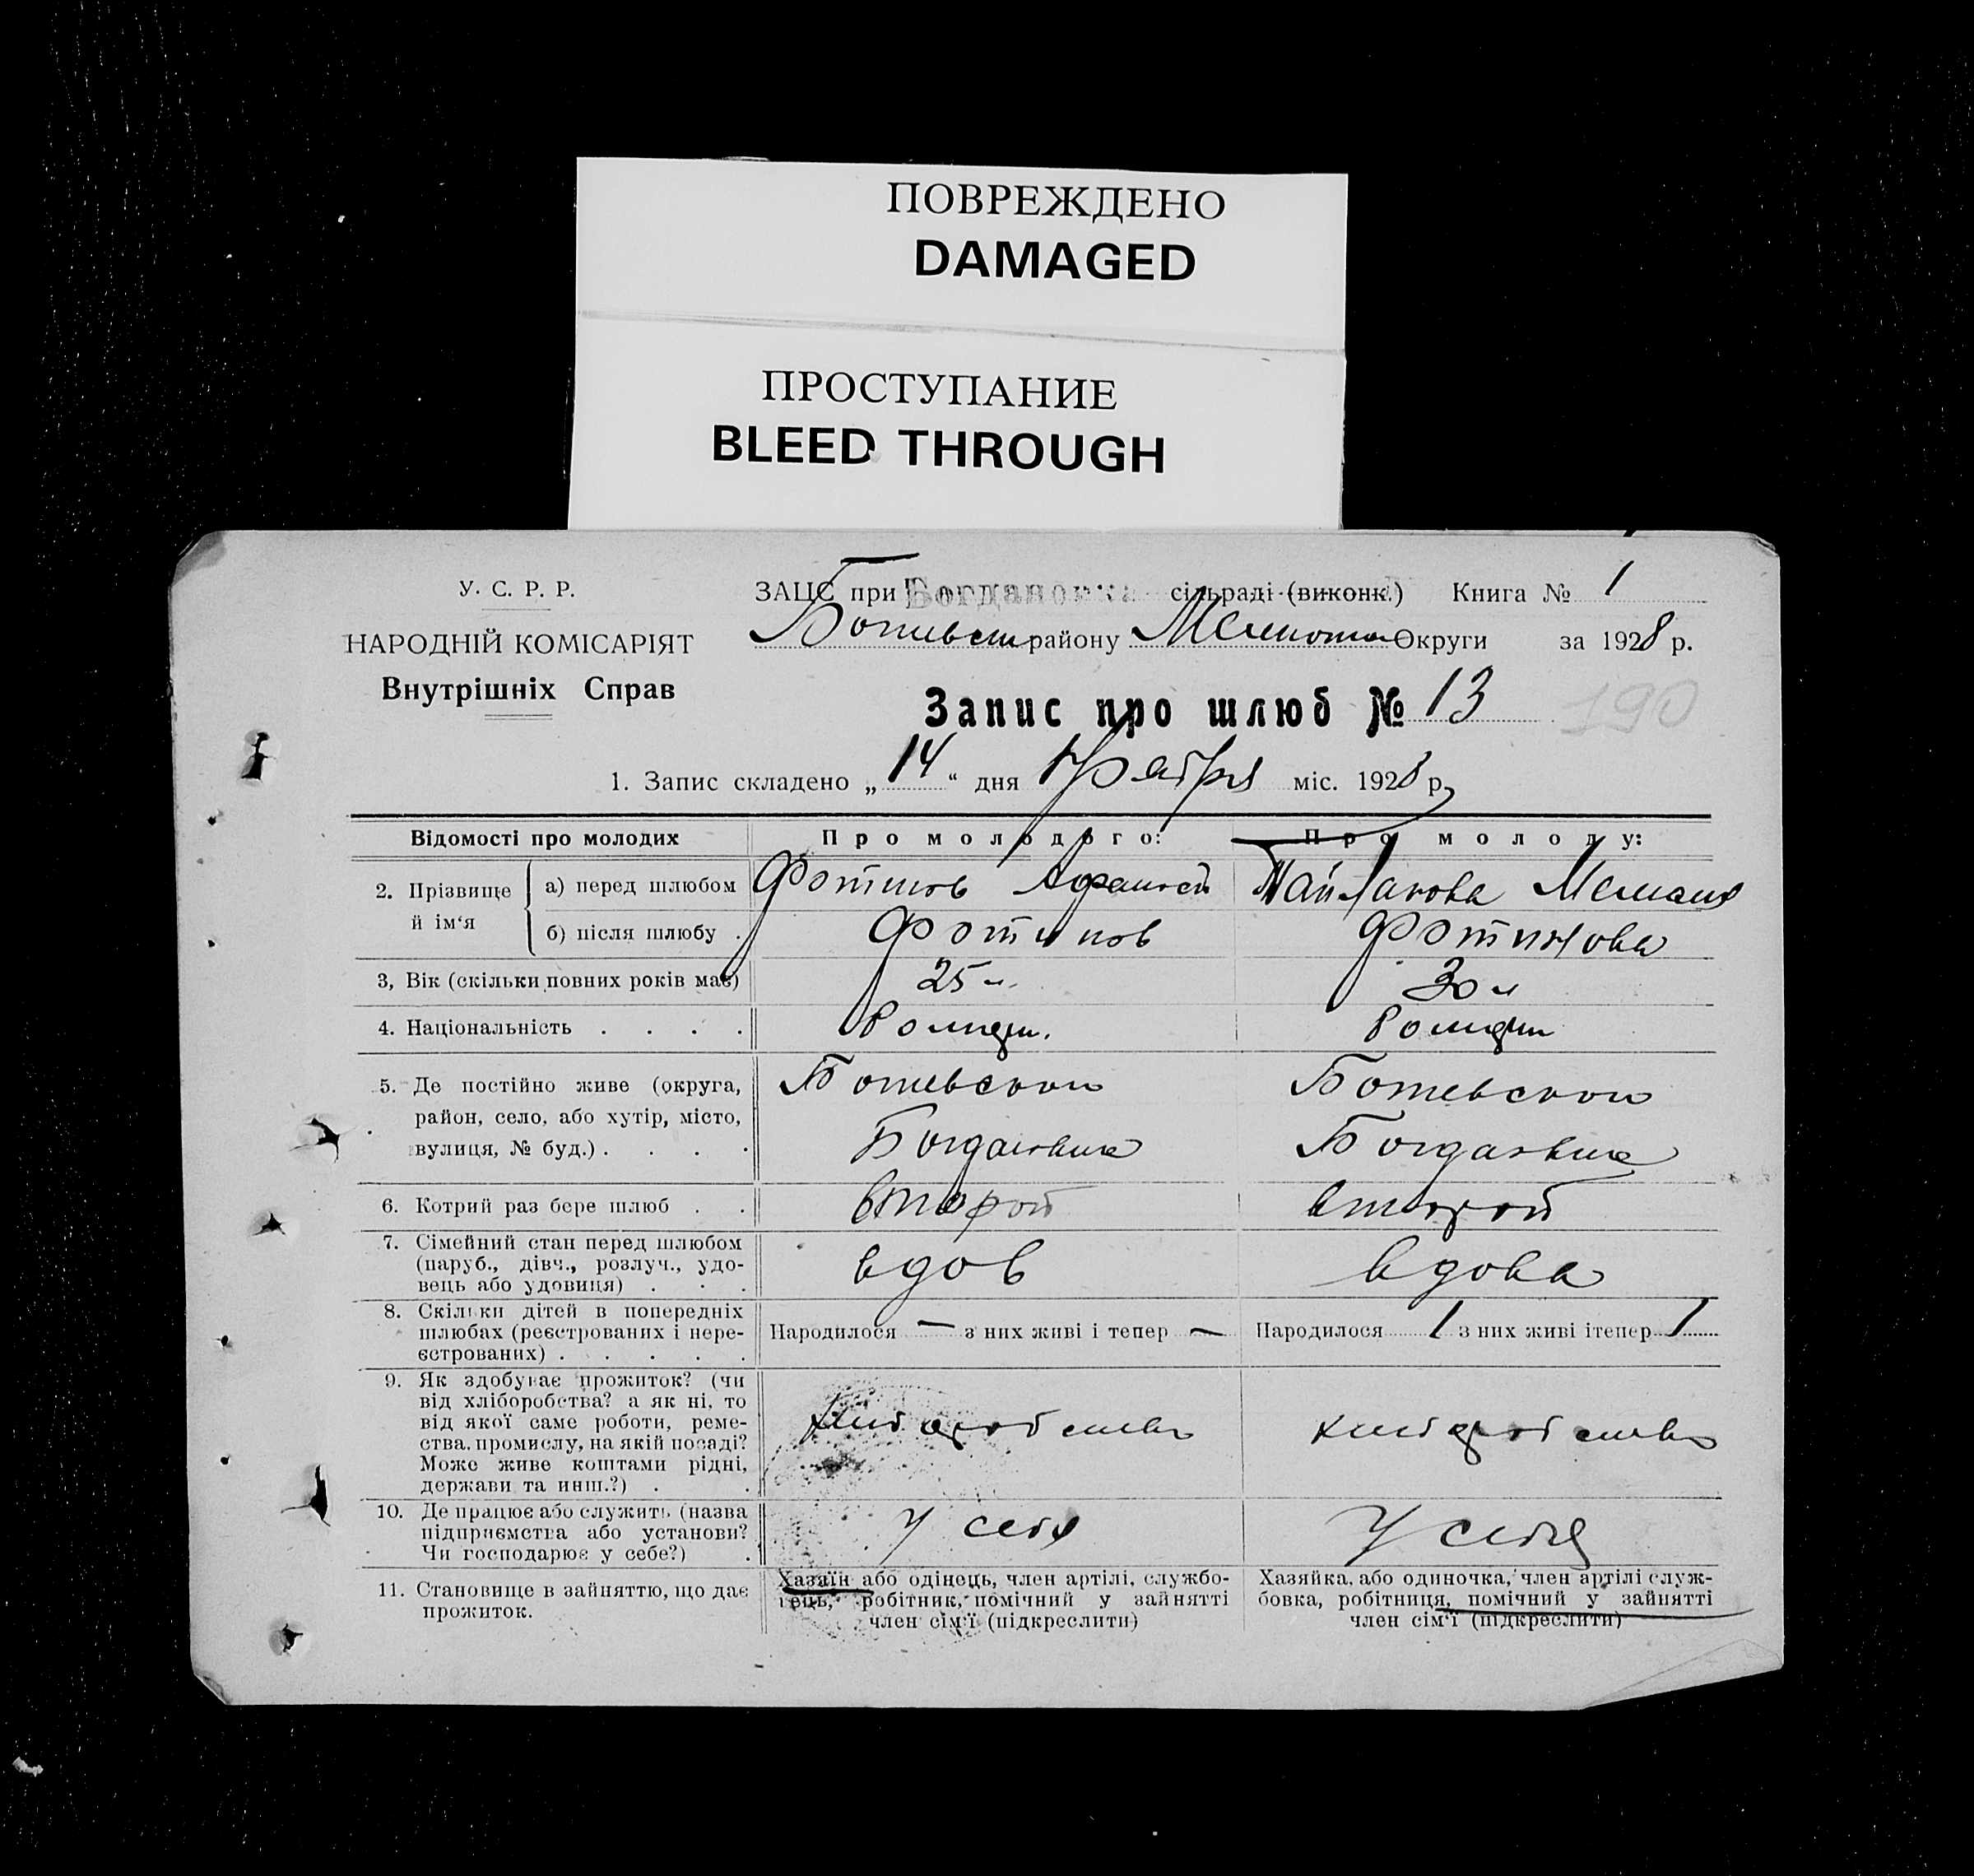 ПОВРЕЖДЕНО
DAMAGED
ПРОСТУПАНИЕ
BLEED THROUGH
У. С. Р. Р.
НАРОДНІЙ КОМІСАРІЯТ
Внутрішніх Справ
ЗАЦС при Богдановка сільраді (виконк.) Книга № 1
району Округи за 1928 р.
Запис про шлюб № 13
190
1. Запис складено „ 14 “ дня міс. 1928 р.
Відомості про молодих
Про молодого:
Про молоду:
2. Прізвище й ім‘я
а) перед шлюбом
Фотинов
б) після шлюбу .
Фотинов
Фотинова
3, Вік (скільки повних років має)
25 л.
30 л
4. Національність . . . .
5. Де постійно живе (округа,
район, село, або хутір, місто,
вулиця, № буд.) . . . .
Ботевскои
Богдановка
Ботевскои
Богдановка
6. Котрий раз бере шлюб . .
второй
второй
7. Сімейний стан перед шлюбом
(паруб., дівч., розлуч., удо-
вець або удовиця) . . .
вдов
вдова
8. Скільки дітей в попередніх
шлюбах (реєстрованих і нере-
єстрованих) . . . . .
Народилося — з них живі і тепер —
Народилося 1 з них живі ітепер 1
9. Як здобуває прожиток? (чи
від хліборобства? а як ні, то
від якої саме роботи, реме-
ства, промислу, на якій посаді?
Може живе коштами рідні,
держави та инш.?) . .
хлиборобство
хлиборобство
10. Де працює або служить (назва
підприємства або установи?
Чи господарює у себе?) .
у себя
у себя
11. Становище в зайняттю, що дає
прожиток.
Хазяїн або одінець, член артілі, службо-
вець, робітник, помічний у зайнятті
член сім‘ї (підкреслити)
Хазяйка, або одиночка, член артілі служ-
бовка, робітниця, помічний у зайнятті
член сім‘ї (підкреслити)